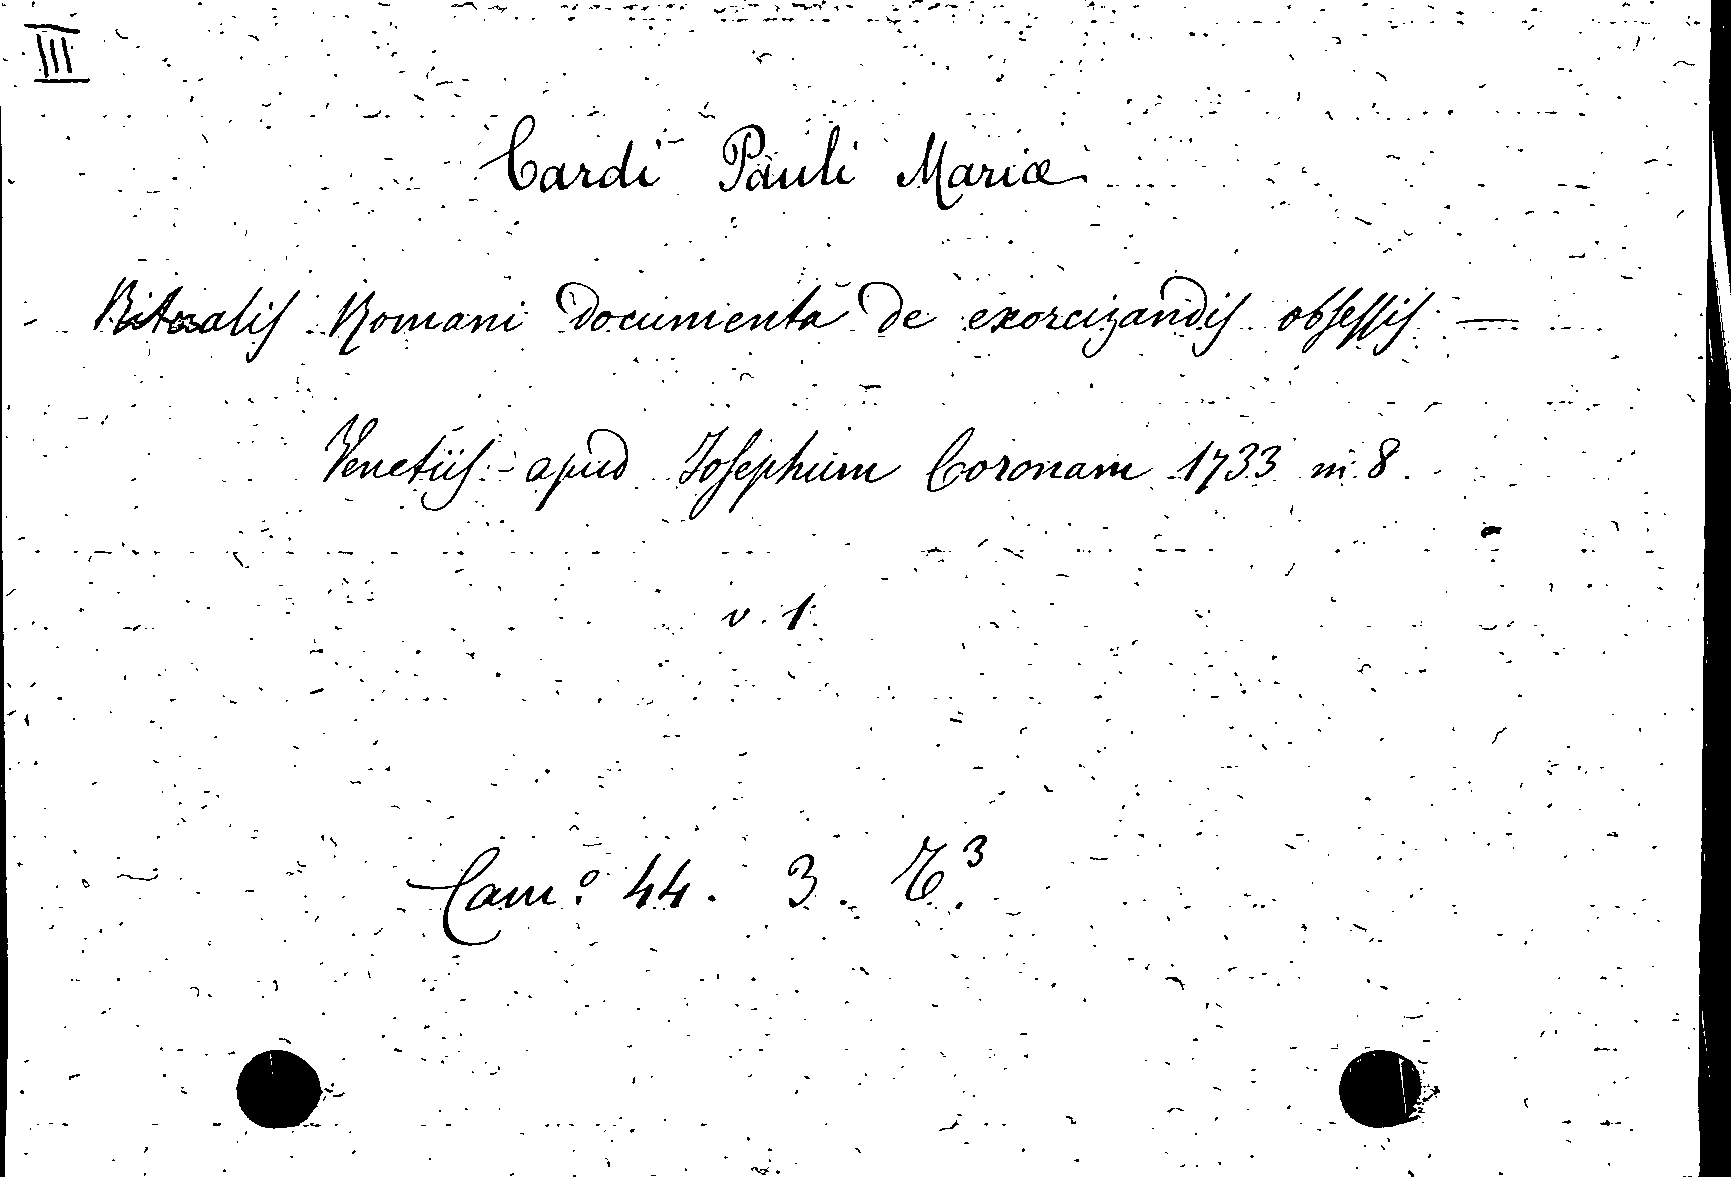 III
Cardi Pauli Mariæ
Ritualis Romani documenta de exorcizandis obsessis —
Venetiis - apud Josephum Coronam 1733 in 8
v. 1.
Cam: 44. 3.